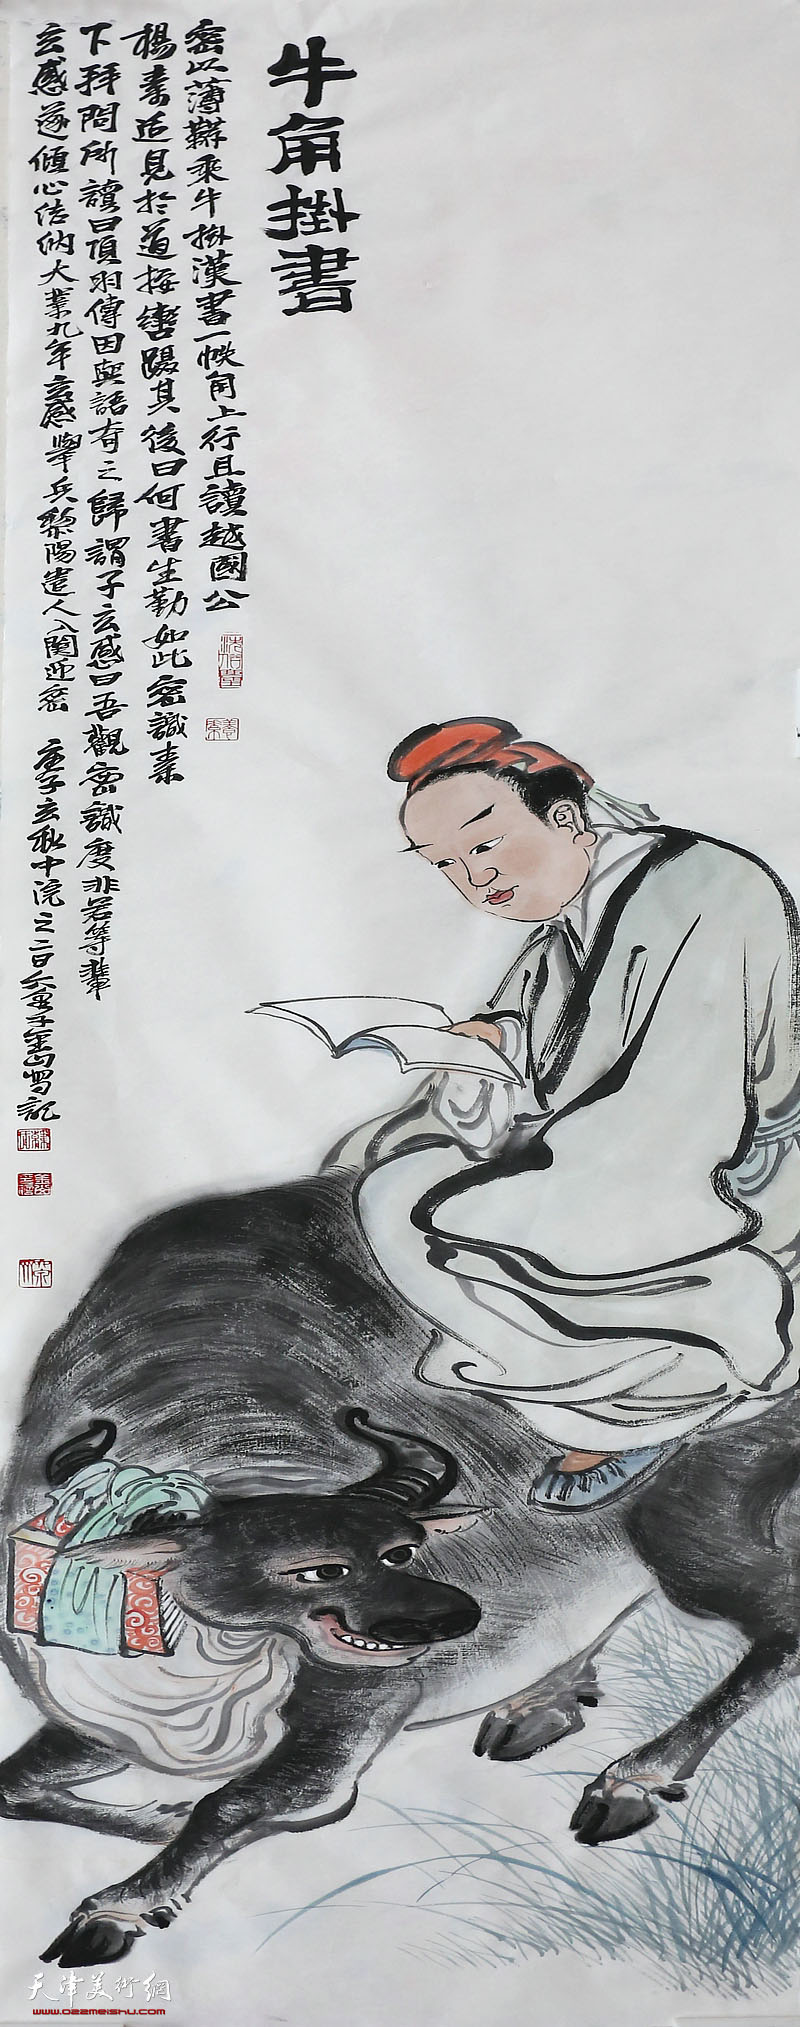 牛角掛書
密以薄韉乘牛掛漢書一帙角上行且讀越國公
楊素适見於道按轡躡其後曰何書生勤如此密識素
下拜問所讀曰項羽傳因與語奇之歸謂子玄感曰吾觀密識度非若等輩
玄感遂傾心結納大業九年玄感舉兵黎陽遣人入關迎密 庚子玄秋中浣之二日
天津美術網
www.022meishu.com